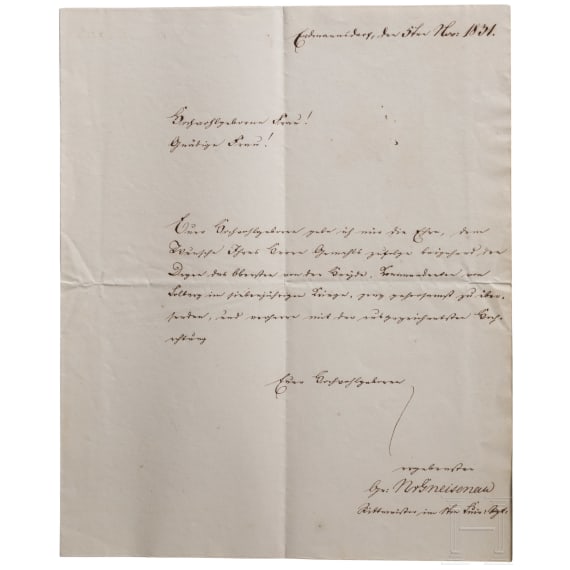 Erdmannsdorf, den 5ten Nov: 1831.
Hochwohlgeborne Frau!
Gnädige Frau!
Euer Hochwohlgeboren gebe ich mir die Ehre, dem
Wunsche Ihres Herrn Gemahls zufolge beigehend den
Degen des Obersten von der Heyde, Kommandanten von
Colberg im siebenjährigen Kriege, ganz gehorsamst zu über-
senden, und verharre mit der ausgezeichnetsten Hoch-
achtung
Euer Hochwohlgeboren
ergebenster
Gr: N v Gneisenau
Rittmeister im Kür: Rgt.